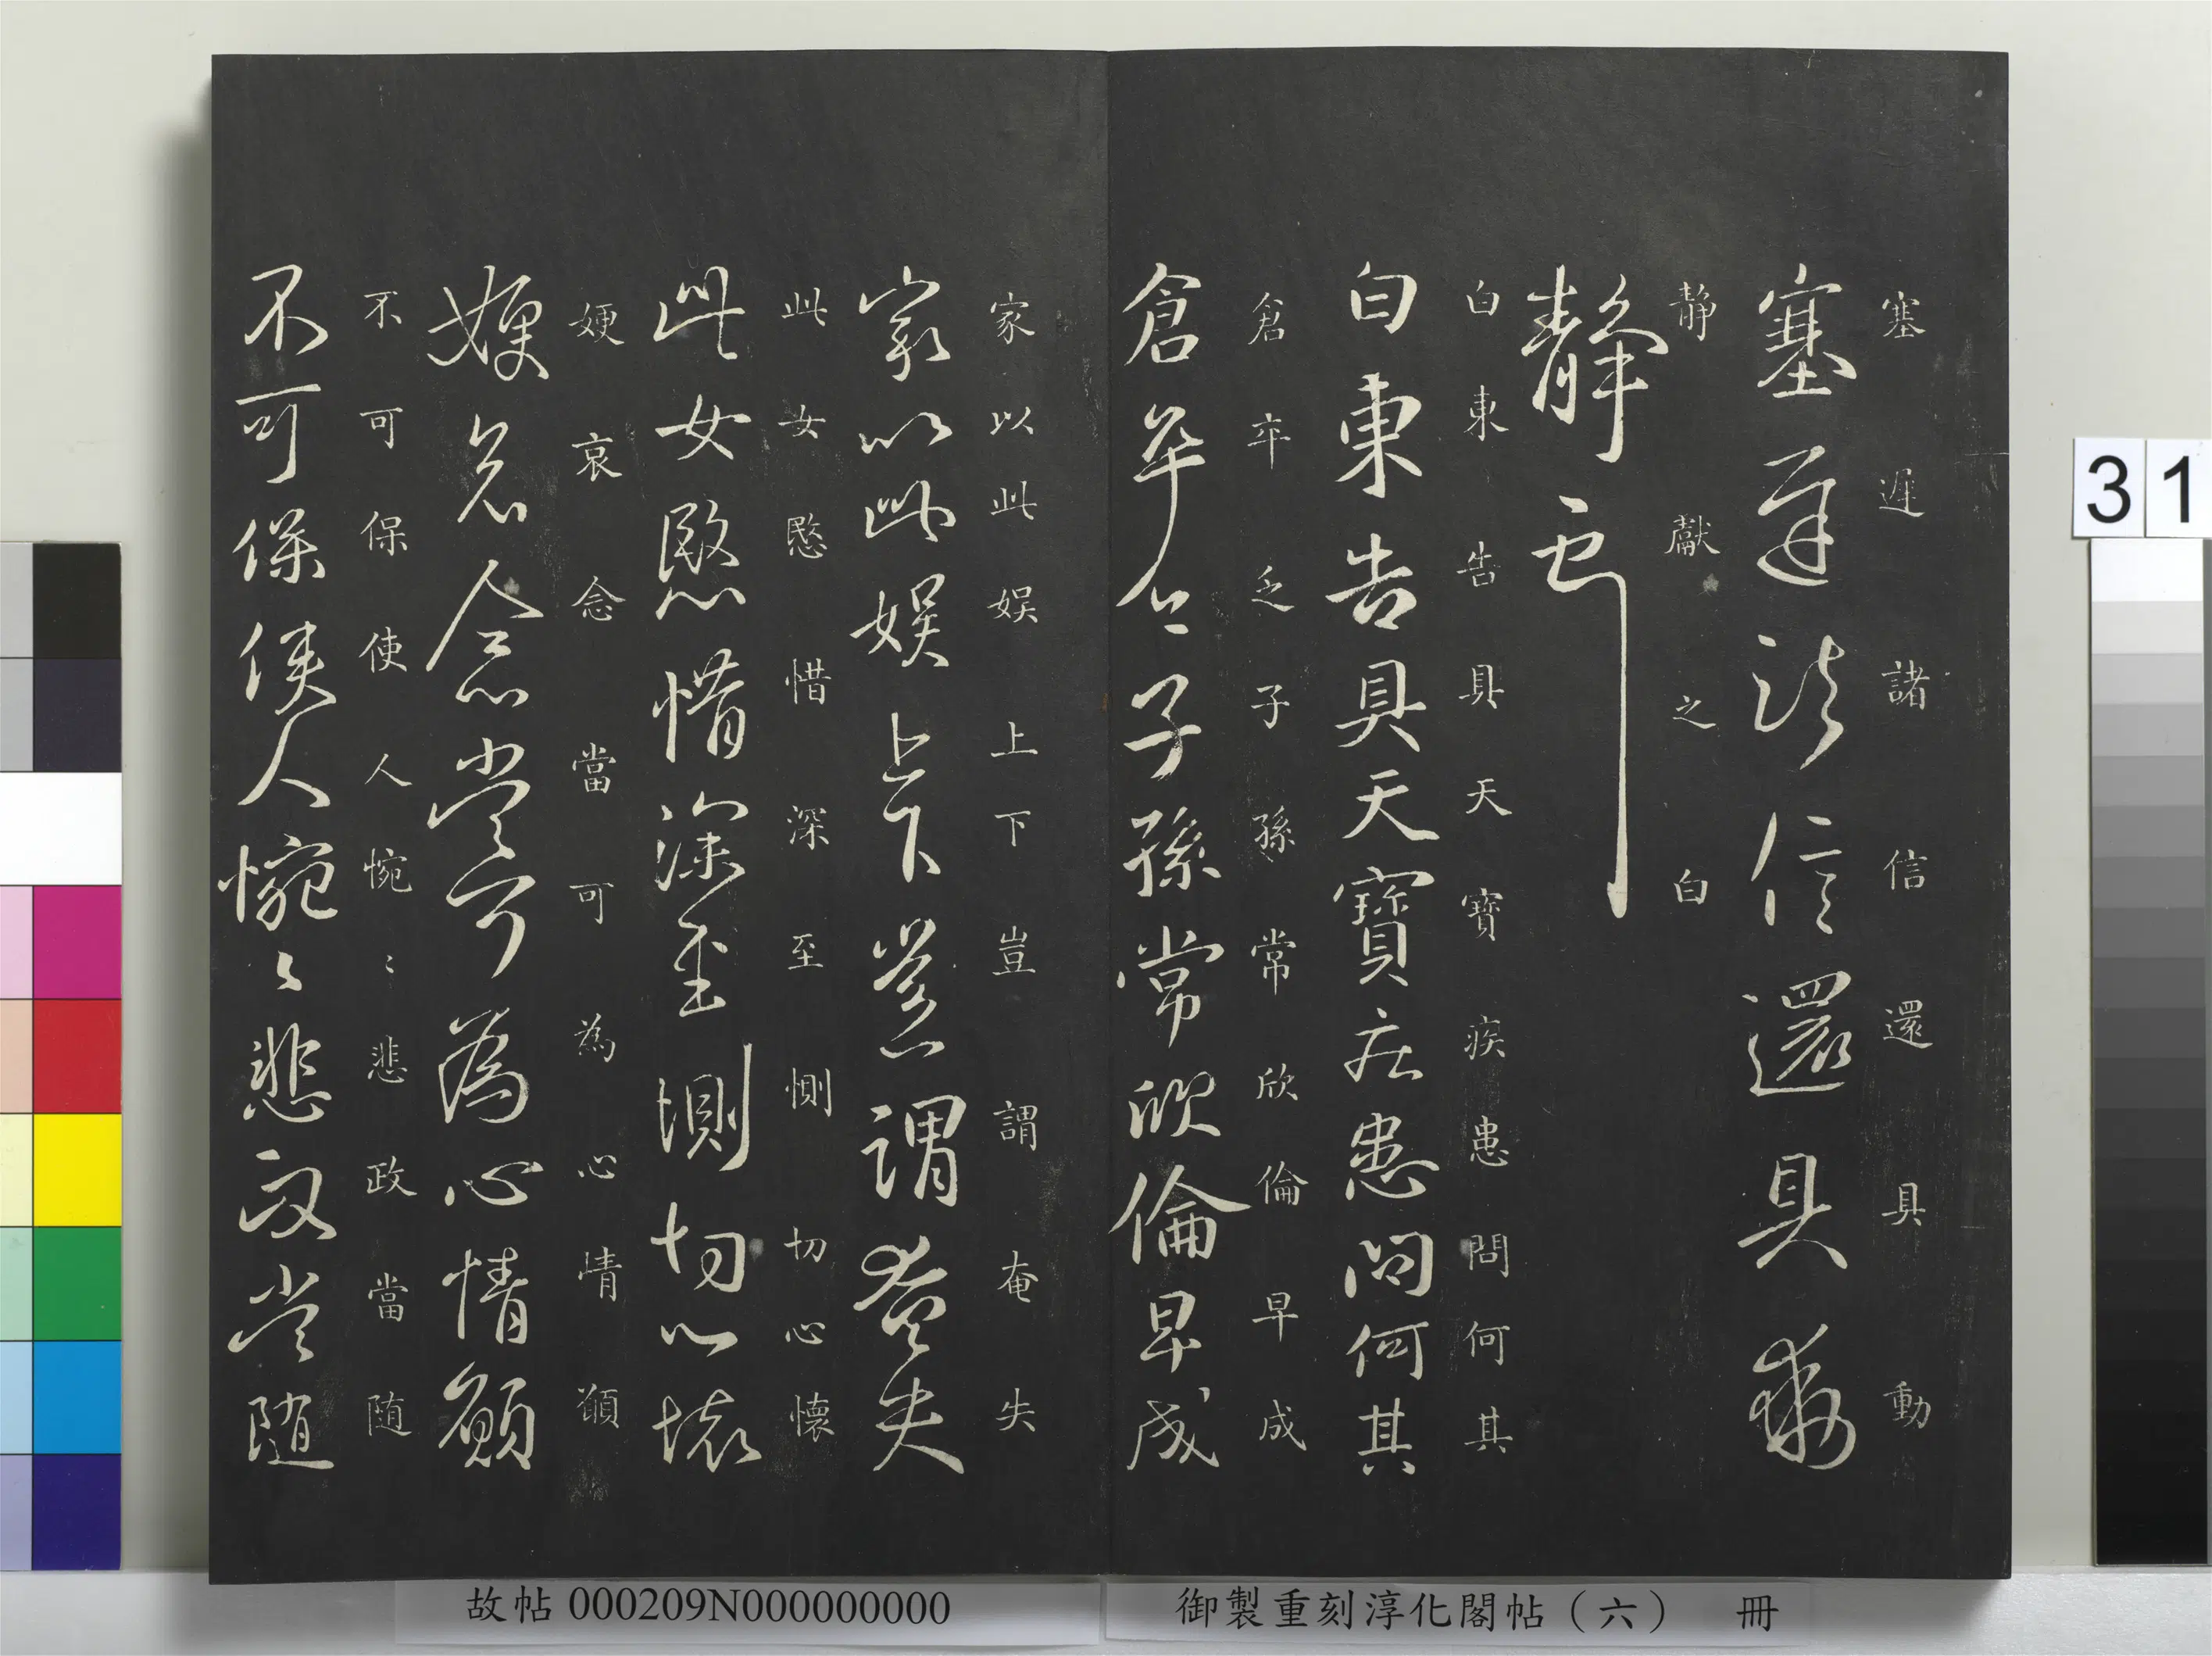 塞遲諸信還具動
塞遲諸信還具動
静獻之白
静獻之白
白東告具天寶疾患問何其
白東告具天寶疾患問何其
倉卒乏子孫常欣倫早成
倉卒乏子孫常欣倫早成
家以此娱上下豈謂奄失
家以此娱上下豈謂奄失
此女愍惜深至惻切心懷
此女愍惜深至惻切心懷
㛐哀念當可為心情顧
㛐哀念當可為心情顧
不可保使人惋〻悲政當随
不可保使人惋〻悲政當随
31
御製重刻淳化閣帖（六） 冊
故帖 000209N000000000